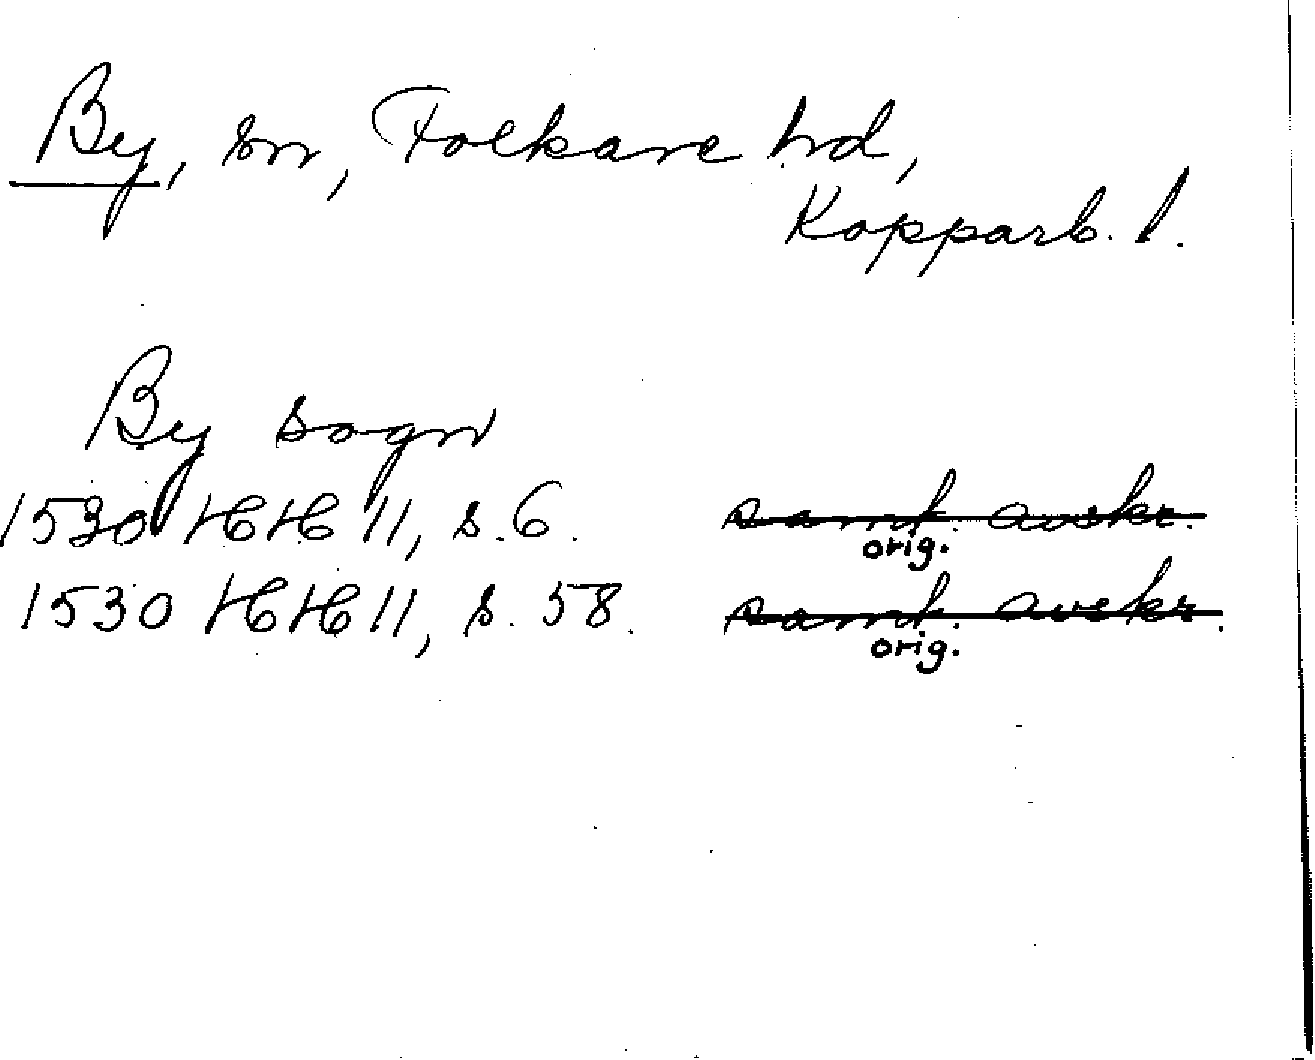 By, sn, Folkare hd,
Kopparb. l.
By sogn
1530 HH 11, s. 6. samt. avskr.
orig.
1530 HH 11, s. 58. samt. avskr.
orig.